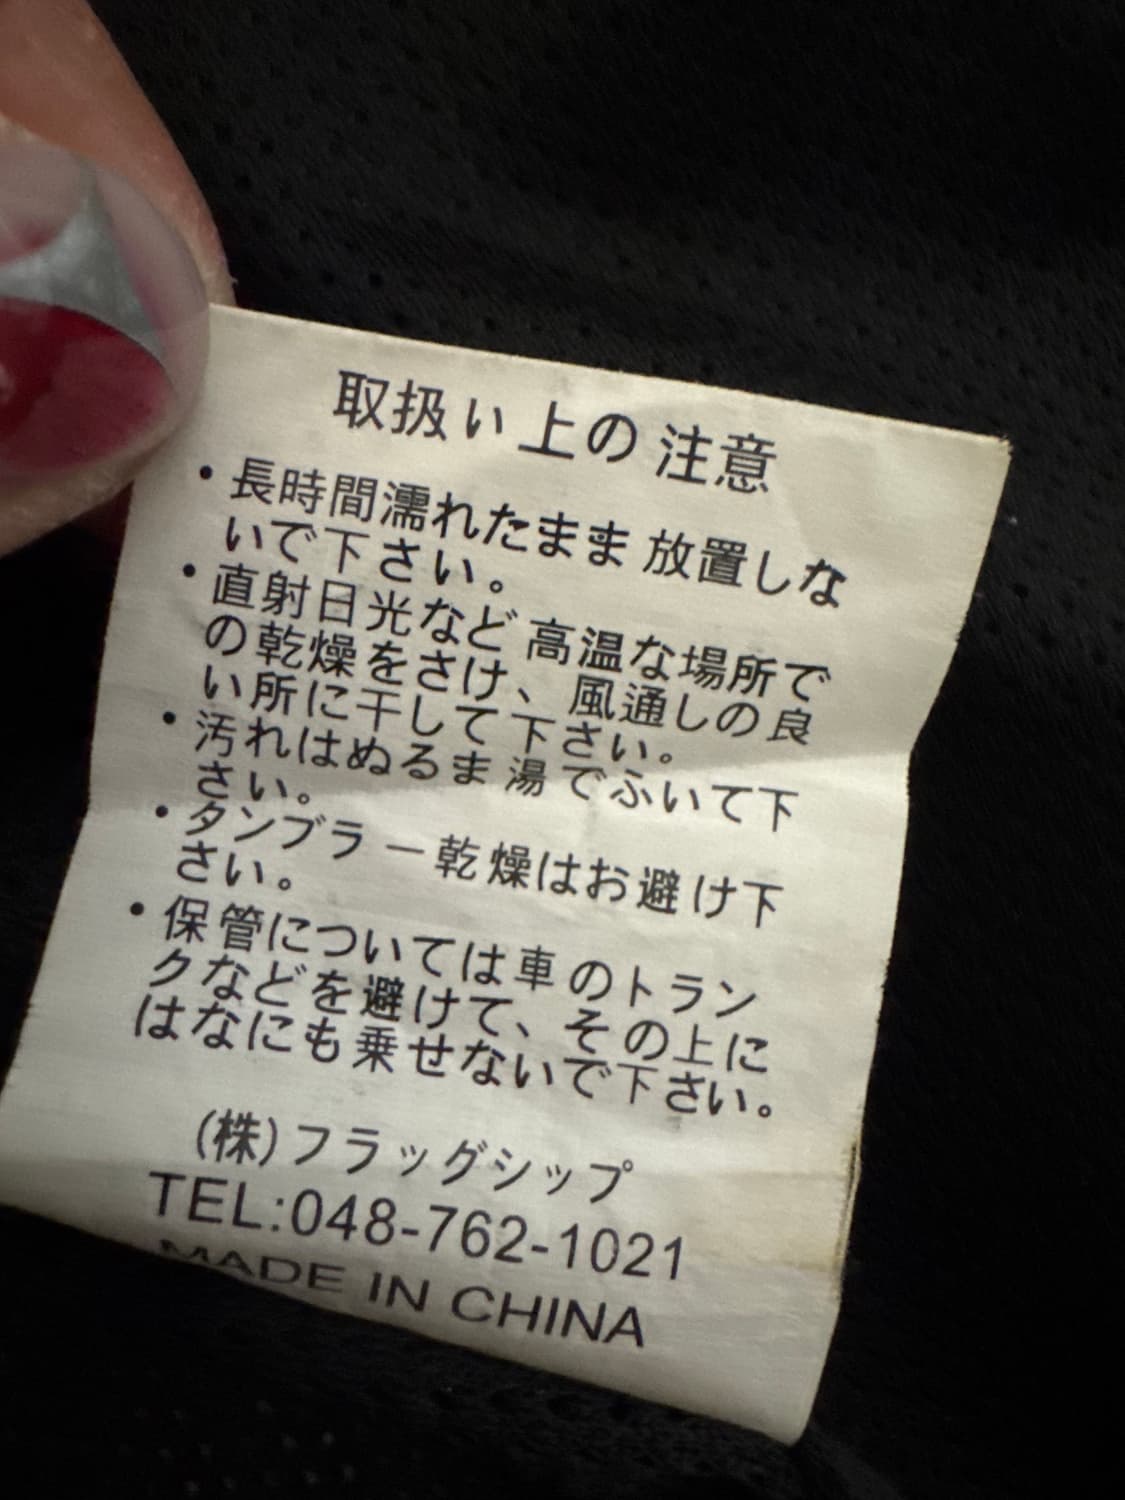 取扱い上の注意
・長時間濡れたまま放置しな
いで下さい。
・直射日光など高温な場所で
の乾燥をさけ、風通しの良
い所に干して下さい。
・汚れはぬるま湯でふいて下
さい。
・タンブラー乾燥はお避け下
さい。
・保管については車のトラン
クなどを避けて、その上に
はなにも乗せないで下さい。
(株)フラッグシップ
TEL:048-762-1021
MADE IN CHINA